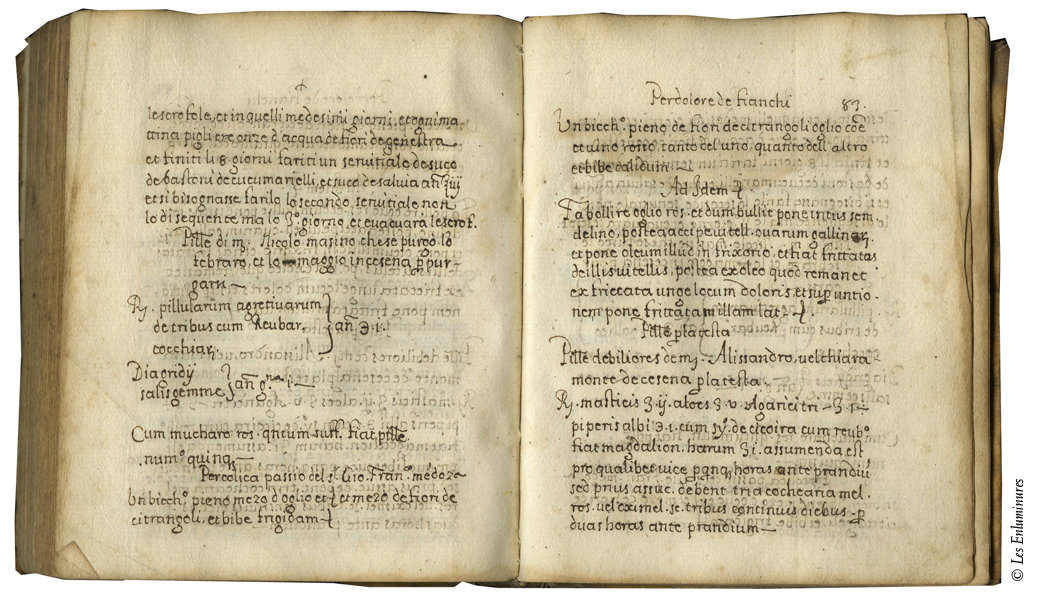 le scrofole, et in quelli medesimi giorni, et ogni ma
ttina pigli tre onze d'acqua de fiori de genestra
et finiti li 8 giorni fariti un servitiale de suco
de bastoni de cucumarielli, et suco de salvia añ ʒ iiij
et si bisognasse farilo lo secondo servitiale non
lo di sequente ma lo 3. giorno, et evacuarà le scrof.
Pille di m. Nicolo masino che se purgò lo
febraro, et lo maggio in cesena p pur-
garsi
R. pillularum agretivarum
de tribus cum Reubar. añ ʒ. i.
cocchiar.
Diagridij
salis gemme añ g.na i
Cum mucharo ros. qntum suff. fiat pille
num.o quinq
Per colica passio del s. Gio. Fran.o medoze
Un bicch.o pieno mezo d'oglio et et mezo de fiori de
citrangoli, et bibe frigidam
Per dolore de fianchi 83.
Un bicch.o pieno de fiori de citrangoli oglio coe
et vino rosso, tanto del uno, quanto dell' altro
et bibe calidum
Ad Idem
Fa bollire oglio ros. et dum bullit pone intus sem.
de lino, postea accipe vitell. ovarum gallinar
et pone oleum illud in frixorio, et fiat frittatas
de illis vitellis, postea ex oleo quod remanet
ex frictata unge locum doloris, et sup untio-
nem pone frittatam illam lat.
Pille p la testa
Pille de biliores de m. Alissandro, vel chiara
monte de cesena p la testa.
R. masticis ʒ. ij. aloes ʒ. v. Agarici tri ʒ i
piperis albi ʒ. i. cum sy. de cicoira cum reub.o
fiat magdalion. harum ʒ i. assumenda est
pro qualibet vice p qnq horas ante prandiu
sed prius assue. debent tria cochearia mel.
ros. vel oximel. se. tribus continuis diebus p
duas horas ante prandium
© Les Enluminures